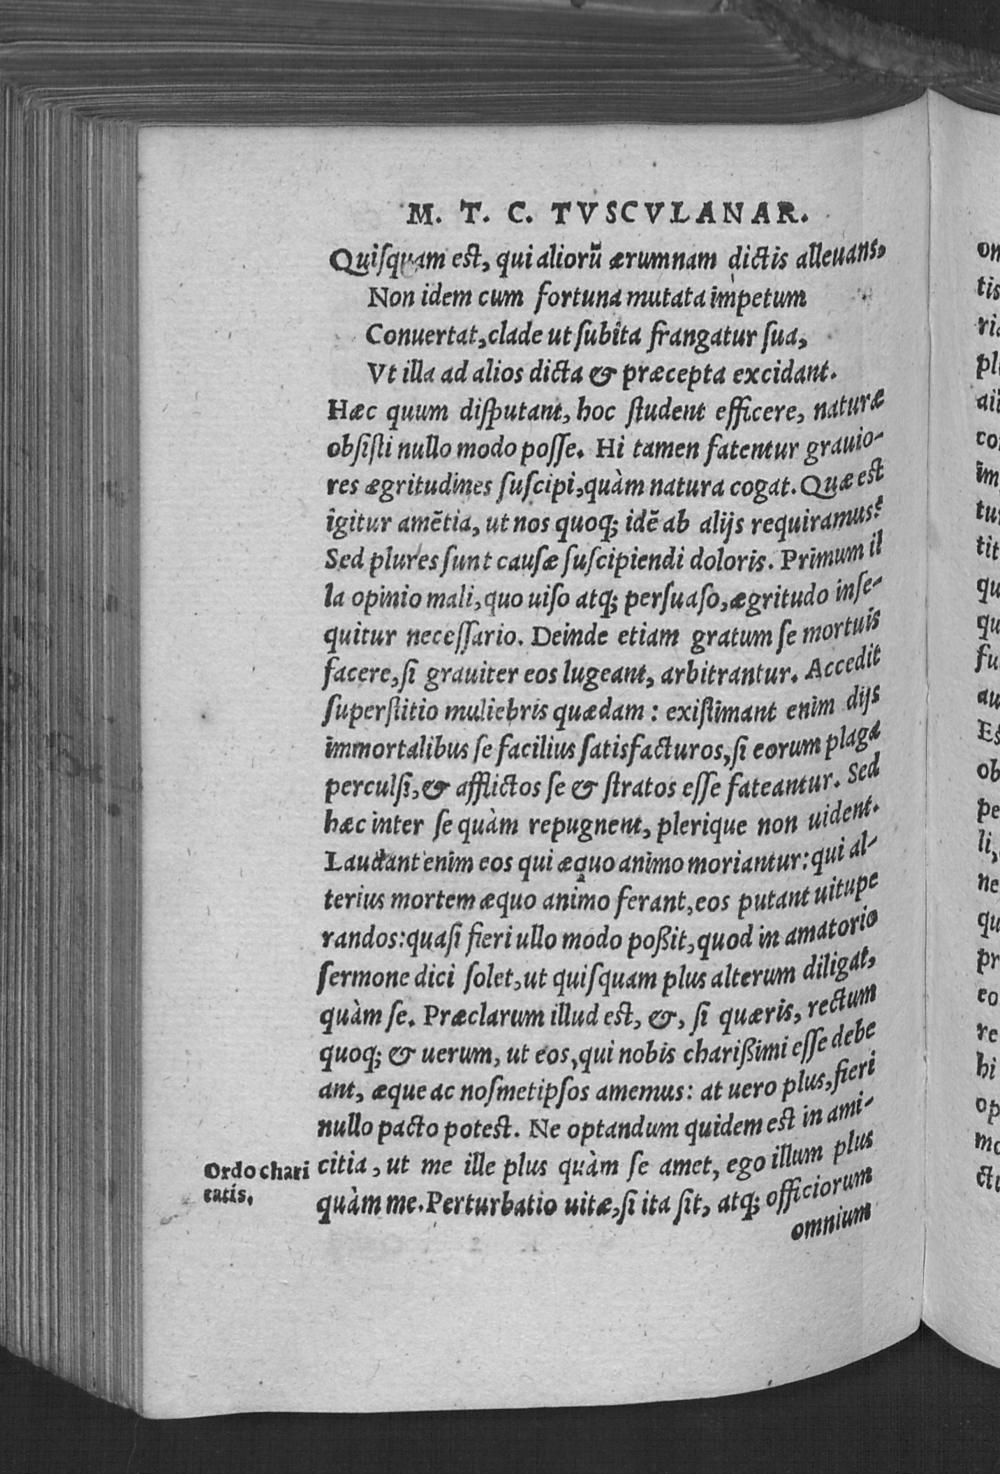 M. T. C. TVSCVLANAR.
Quiſquam est, qui aliorũ ærumnam dictis alleuans,
Non idem cum fortuna mutata impetum
Conuertat, clade ut ſubita frangatur ſua,
Vt illa ad alios dicta & præcepta excidant.
Hæc quum diſputant, hoc ſtudent efficere, naturæ
obſiſti nullo modo poſſe. Hi tamen fatentur grauio-
res ægritudines ſuſcipi, quàm natura cogat. Quæ est
igitur amẽtia, ut nos quoq; idẽ ab alijs requiramus?
Sed plures ſunt cauſæ ſuſcipiendi doloris. Primum il
la opinio mali, quo uiſo atq; perſuaſo, ægritudo inſe-
quitur neceſſario. Deinde etiam gratum ſe mortuis
facere, ſi grauiter eos lugeant, arbitrantur. Accedit
ſuperſtitio muliebris quædam: exiſtimant enim dijs
immortalibus ſe facilius ſatisfacturos, ſi eorum plaga
perculſi, & afflictos ſe & ſtratos eſſe fateantur. Sed
hæc inter ſe quàm repugnent, plerique non uident.
Laudant enim eos qui æquo animo moriantur: qui al-
terius mortem æquo animo ferant, eos putant uitupe
randos: quaſi fieri ullo modo poßit, quod in amatorio
ſermone dici ſolet, ut quiſquam plus alterum diligat,
quàm ſe. Præclarum illud est, &, ſi quæris, rectum
quoq; & uerum, ut eos, qui nobis charißimi eſſe debe
ant, æque ac noſmetipſos amemus: at uero plus, fieri
nullo pacto potest. Ne optandum quidem est in ami-
Ordo chari
tatis.
citia, ut me ille plus quàm ſe amet, ego illum plus
quàm me. Perturbatio uitæ, ſi ita ſit, atq; officiorum
omnium